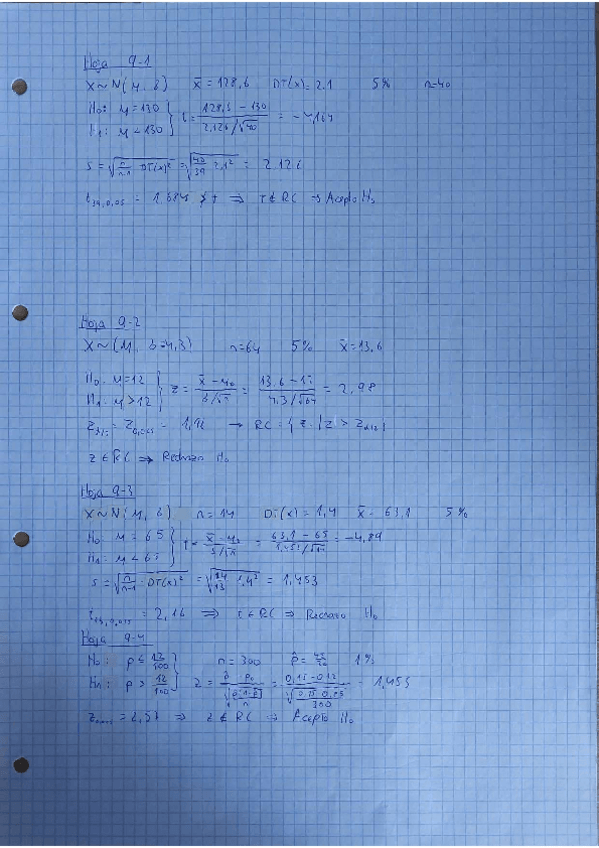 Hoja 9-1
X ~ N(μ, σ) x̄ = 128,6 DT(x) = 2.1 5% n=40
H₀: μ=130
H₁: μ < 130 } t = (128,5 − 130)/(2,126/√40) = −4,164
s = √(n/(n-1) · DT(x)²) = √(40/39 · 2,1²) = 2.126
t₃₉,₀,₀₅ = 1,684 ⇒ t ∉ RC → Acepto H₀
Hoja 9-2
X ~ (μ, σ=4,3) n=64 5% x̄ = 13,6
H₀: μ=12
H₁: μ > 12 } z = (x̄ − μ₀)/(σ/√n) = (13,6 − 12)/(4,3/√64) = 2,98
→ RC = { z : |z| > zα/₂ }
z ∈ RC ⇒ Rechazo H₀
Hoja 9-3
X ~ N(μ, σ) n = 14 DT(x) = 1,4 x̄ = 63,1 5%
H₀: μ = 65
H₁: μ < 65 } t = (x̄ − μ₀)/(s/√n) = (63,1 − 65)/(1,453/√14) = −4,89
s = √(n/(n-1) · DT(x)²) = √(14/13 · 1,4²) = 1,453
= 2,16 ⇒ t ∈ RC ⇒ Rechazo H₀
Hoja 9-4
H₀: p ≤ 12/100 n = 300 1%
H₁: p > 12/100 } z = 1,453
= 2,57 ⇒ z ∉ RC → Acepto H₀